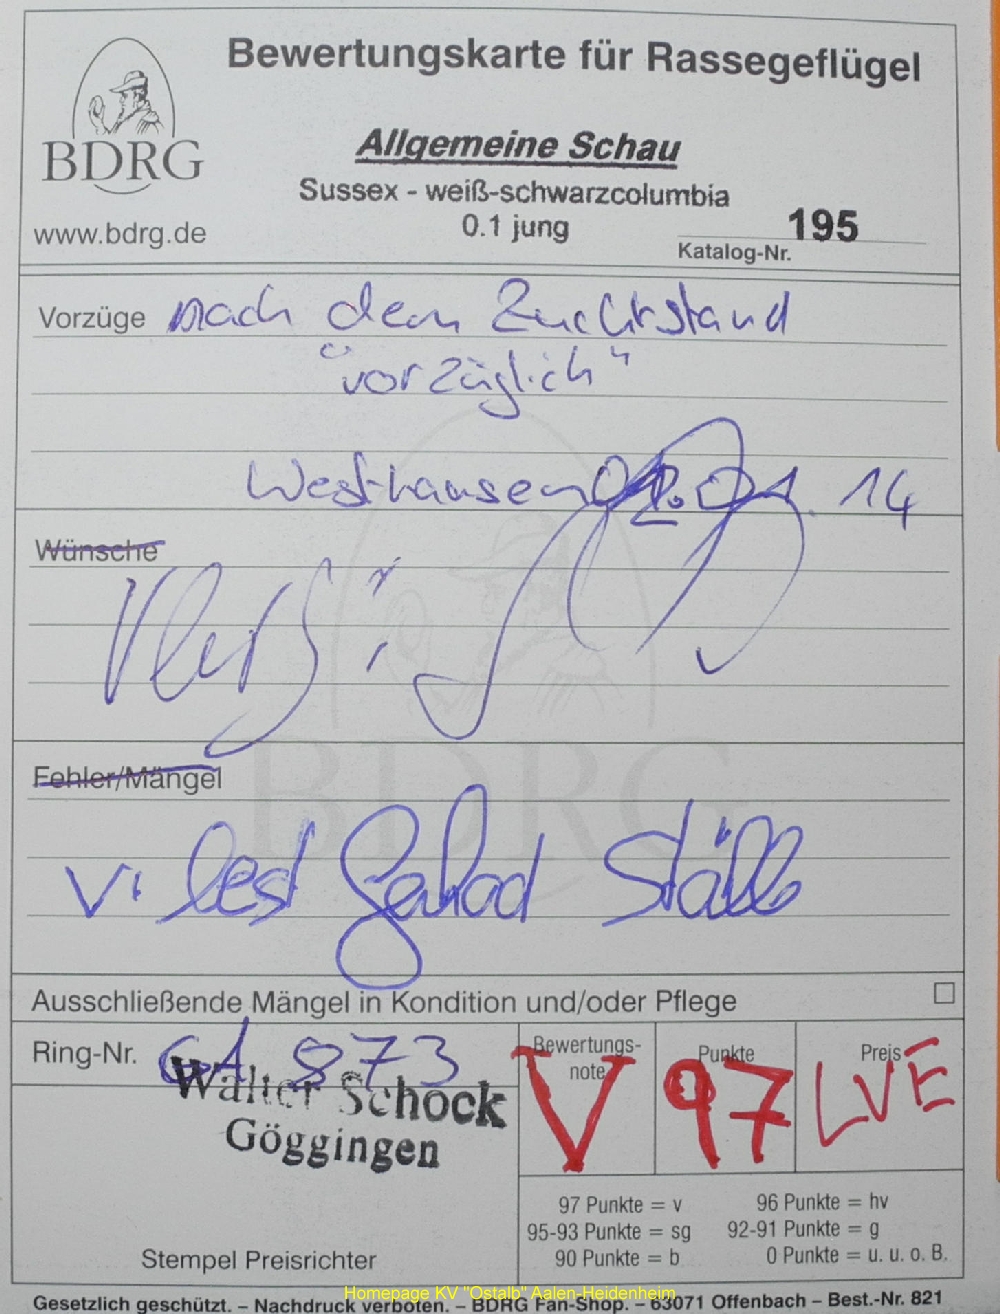 Bewertungskarte für Rassegeflügel
BDRG
www.bdrg.de
Allgemeine Schau
Sussex - weiß-schwarzcolumbia
0.1 jung
195
Katalog-Nr.
Vorzüge nach dem Zuchtstand
"vorzüglich"
Westhausen 14
Wünsche
Fehler/Mängel
V.
BDRG
Ausschließende Mängel in Kondition und/oder Pflege
Ring-Nr. 873
Walter Schock
Göggingen
Stempel Preisrichter
Bewertungs-
note
V
Punkte
97
Preis
LVE
97 Punkte = v 96 Punkte = hv
95-93 Punkte = sg 92-91 Punkte = g
90 Punkte = b 0 Punkte = u. u. o. B.
Homepage KV "Ostalb" Aalen-Heidenheim
Gesetzlich geschützt. – Nachdruck verboten. – BDRG Fan-Shop. – 63071 Offenbach – Best.-Nr. 821